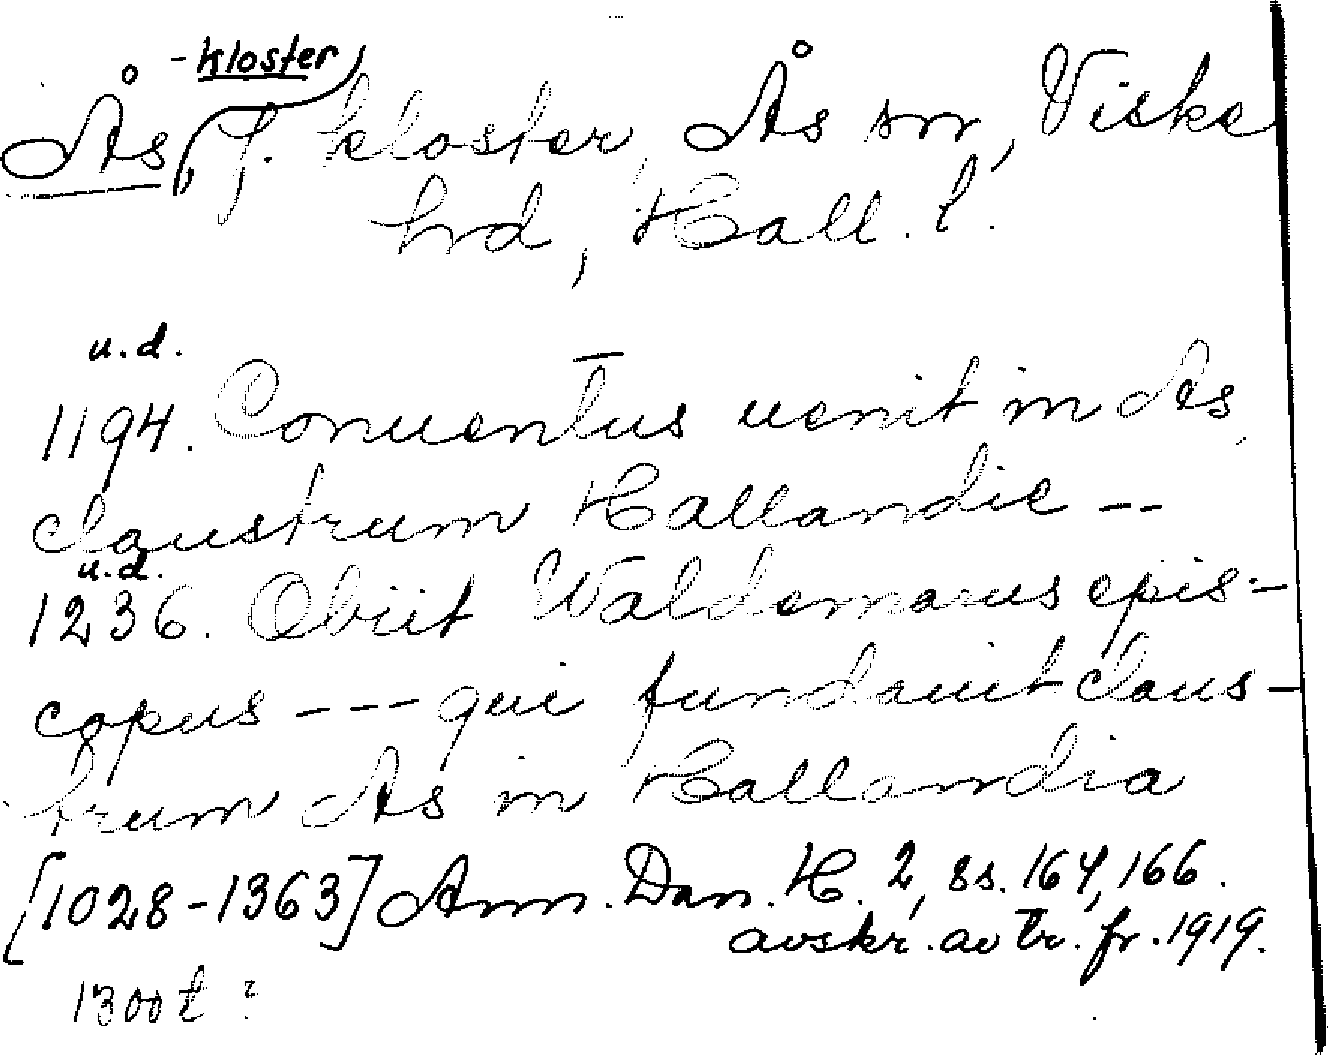 -kloster
Ås, f. kloster, Ås sn, Viske
hrd, Hall. l.
u.d.
1194. Conuentus uenit in As,
claustrum Hallandie --
u.d.
1236. Obiit Waldemarus epis-
copus --- qui fundauit claus-
trum As in Hallandia
[1028-1363] Ann. Dan. H. 2, ss. 164, 166.
avskr. av tr. fr. 1919.
1300 t ?